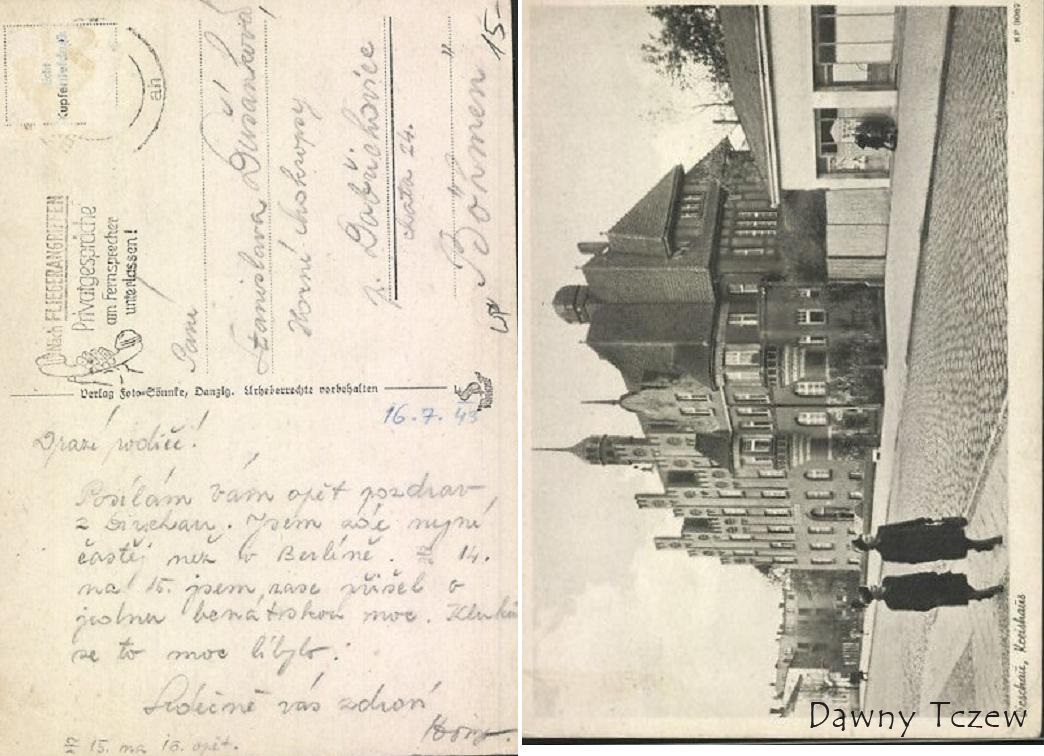 Nicht
Kupfertiefdruck
Nach FLIEGERANGRIFFEN
Privatgespräche
am Fernsprecher
unterlassen!
an
15-
Paní
Stanislava Dušánková
Horní Mokropsy
p. Dobřichovice
chata 24.
Böhmen
Verlag Foto-Sönnke, Danzig. Urheberrechte vorbehalten
16.7.43
Drazí rodiče!
Posílám Vám opět pozdrav
z Dirschau. Jsem zde nyní
častěj než v Berlíně. Ze 14.
na 15. jsem zase přišel o
jednu benátskou noc.
se to moc líbylo.
Srdečně vás zdraví
15. na 16. opět.
Dirschau, Kreishaus
Dawny Tczew